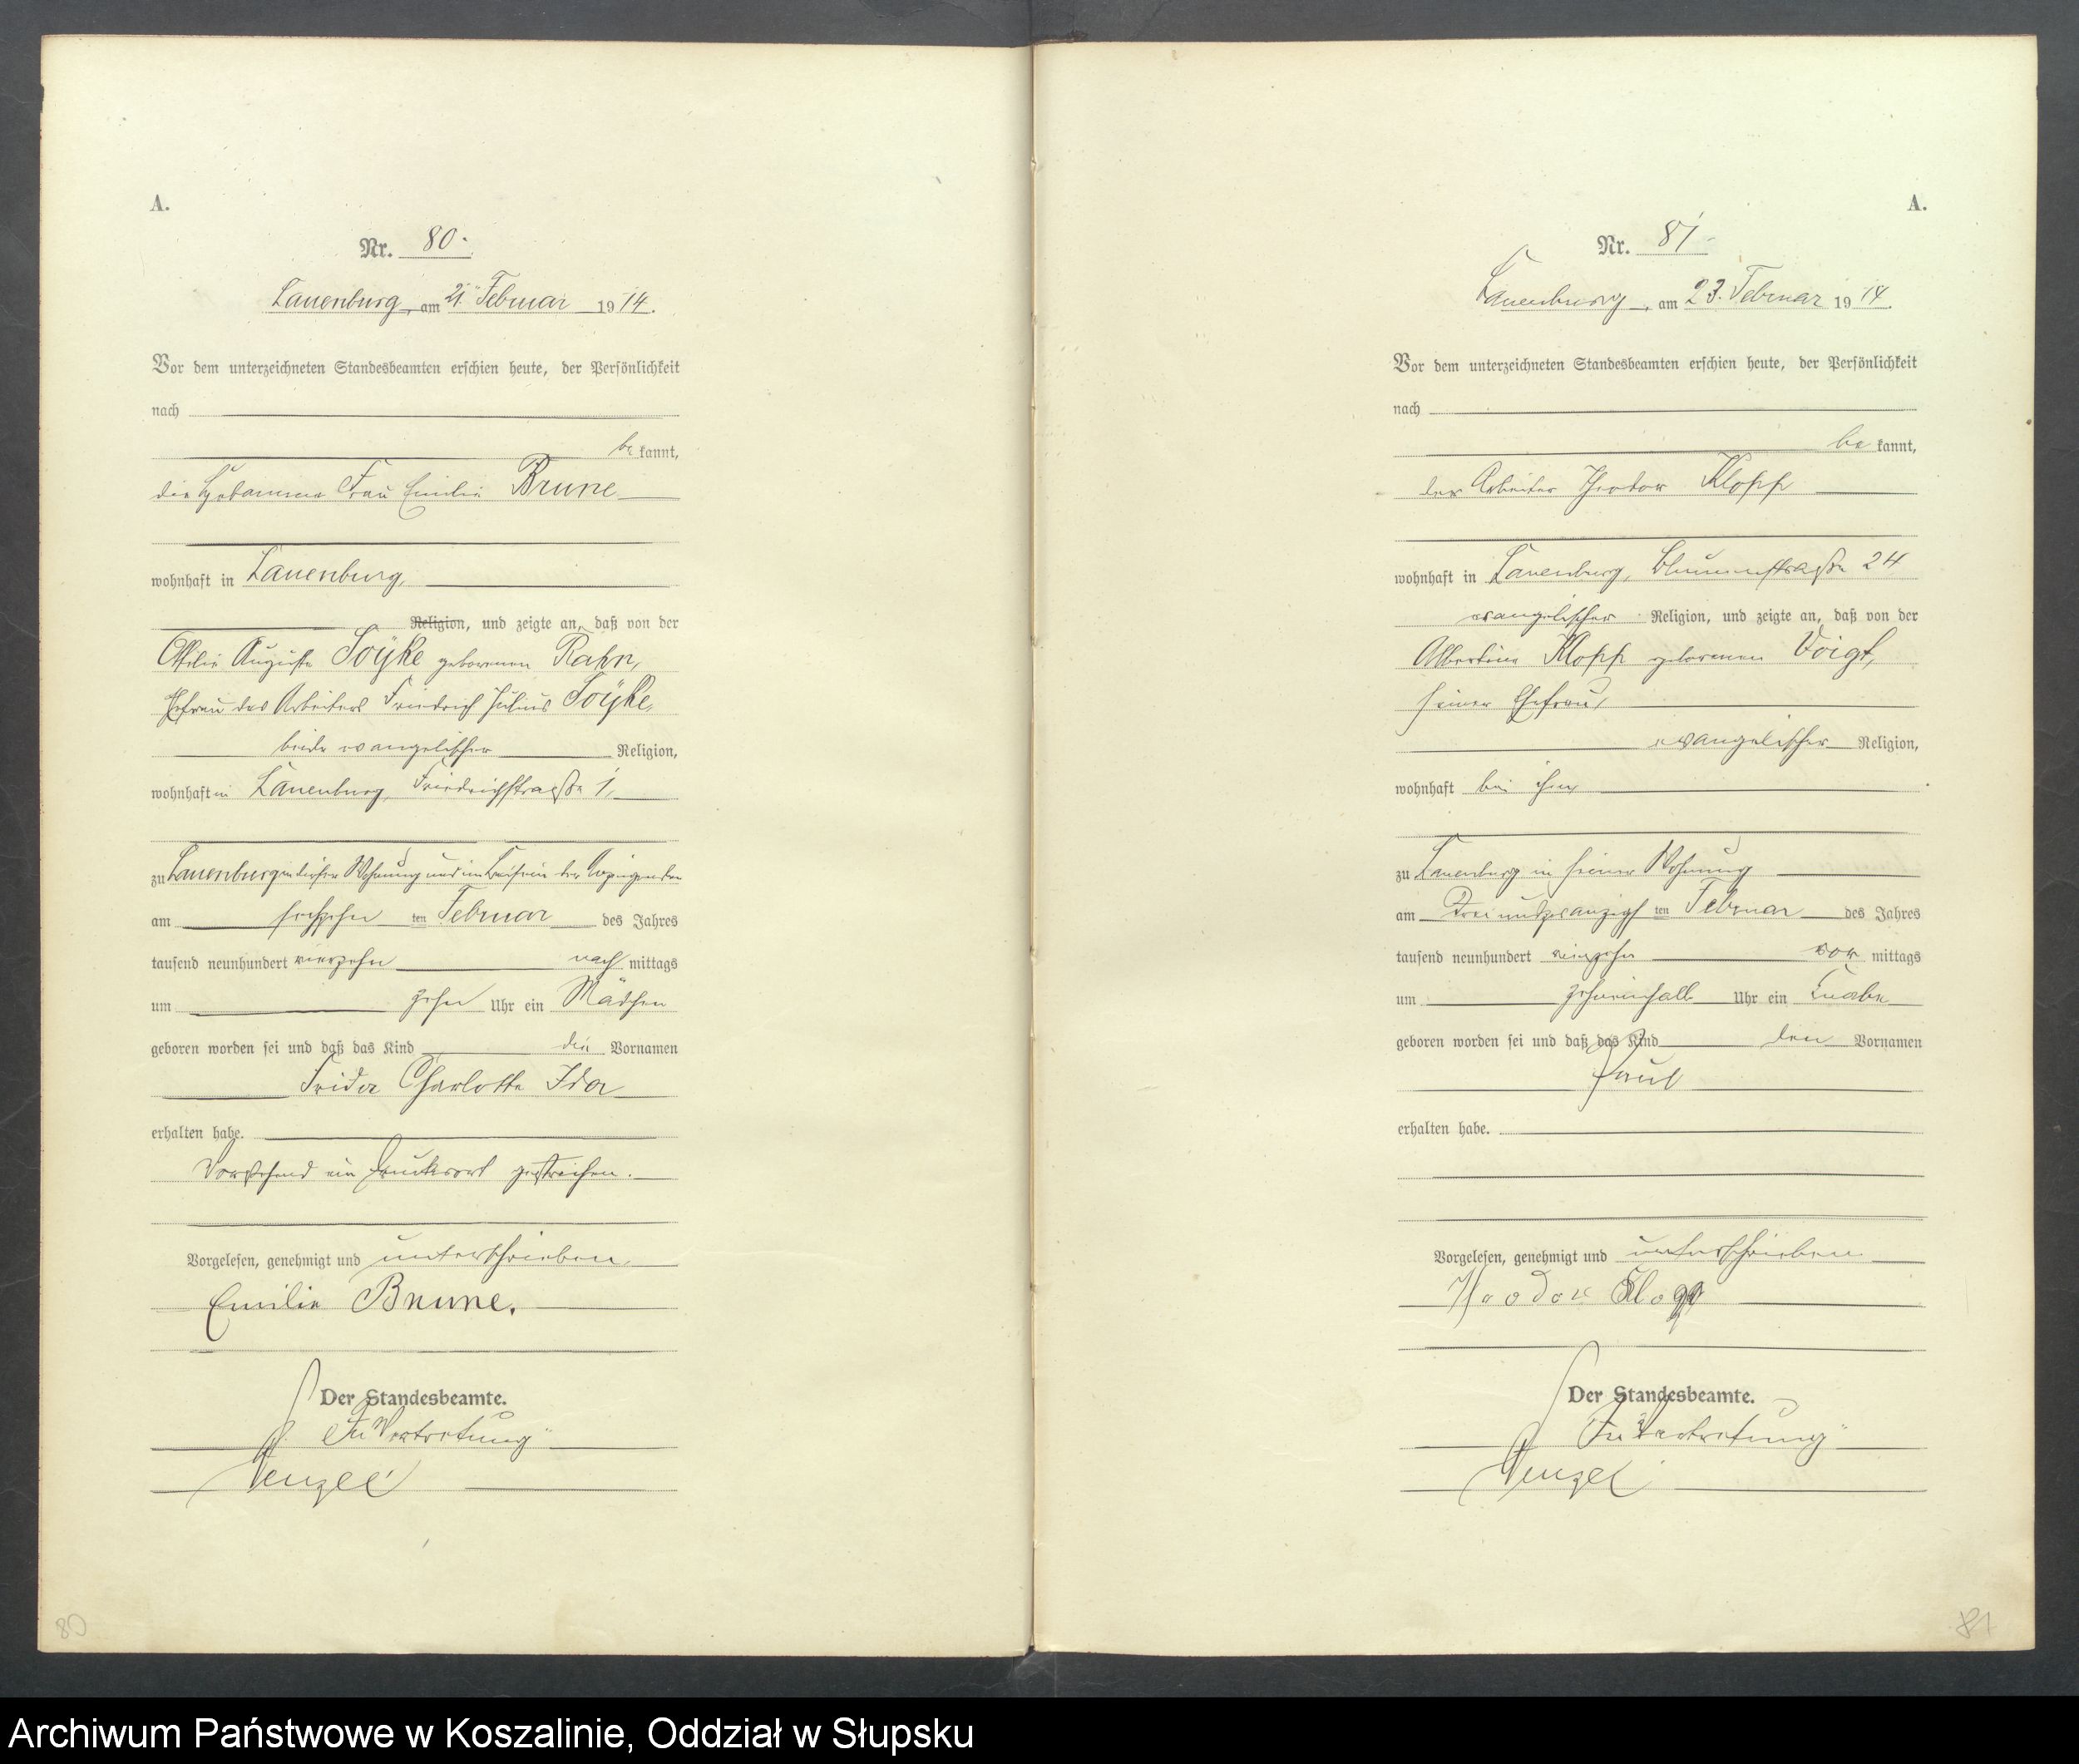 A.
Nr. 80.
Lauenburg, am 21. Februar 1914.
Vor dem unterzeichneten Standesbeamten erschien heute, der Persönlichkeit
nach
be kannt,
die Hebamme Frau Emilie Brune
wohnhaft in Lauenburg,
Religion, und zeigte an, daß von der
Ottilie Auguste Soyke geborenen Rahn,
Ehefrau des Arbeiters Friedrich Julius Soyke,
beide evangelischer Religion,
wohnhaft in Lauenburg, Friedrichstraße 1,
zu Lauenburg in dieser Wohnung und im Beisein der Anzeigenden
am sechszehn ten Februar des Jahres
tausend neunhundert vierzehn nach mittags
um zehn Uhr ein Mädchen
geboren worden sei und daß das Kind die Vornamen
Frida Charlotte Ida
erhalten habe.
Vorstehend ein Druckwort gestrichen.
Vorgelesen, genehmigt und unterschrieben
Emilie Brune.
Der Standesbeamte.
In Vertretung
Wenzel
80
A.
Nr. 81
Lauenburg, am 23. Februar 1914.
Vor dem unterzeichneten Standesbeamten erschien heute, der Persönlichkeit
nach
be kannt,
der Arbeiter Theodor Klopp
wohnhaft in Lauenburg, Blumenstraße 24
evangelischer Religion, und zeigte an, daß von der
Albertine Klopp geborenen Voigt,
seiner Ehefrau,
evangelischer Religion,
wohnhaft bei ihm
zu Lauenburg in seiner Wohnung
am Dreiundzwanzigs ten Februar des Jahres
tausend neunhundert vierzehn vor mittags
um Uhr ein Knabe
geboren worden sei und daß das Kind den Vornamen
Paul
erhalten habe.
Vorgelesen, genehmigt und unterschrieben
Theodor Klopp
Der Standesbeamte.
In Vertretung
Wenzel
81
Archiwum Państwowe w Koszalinie, Oddział w Słupsku